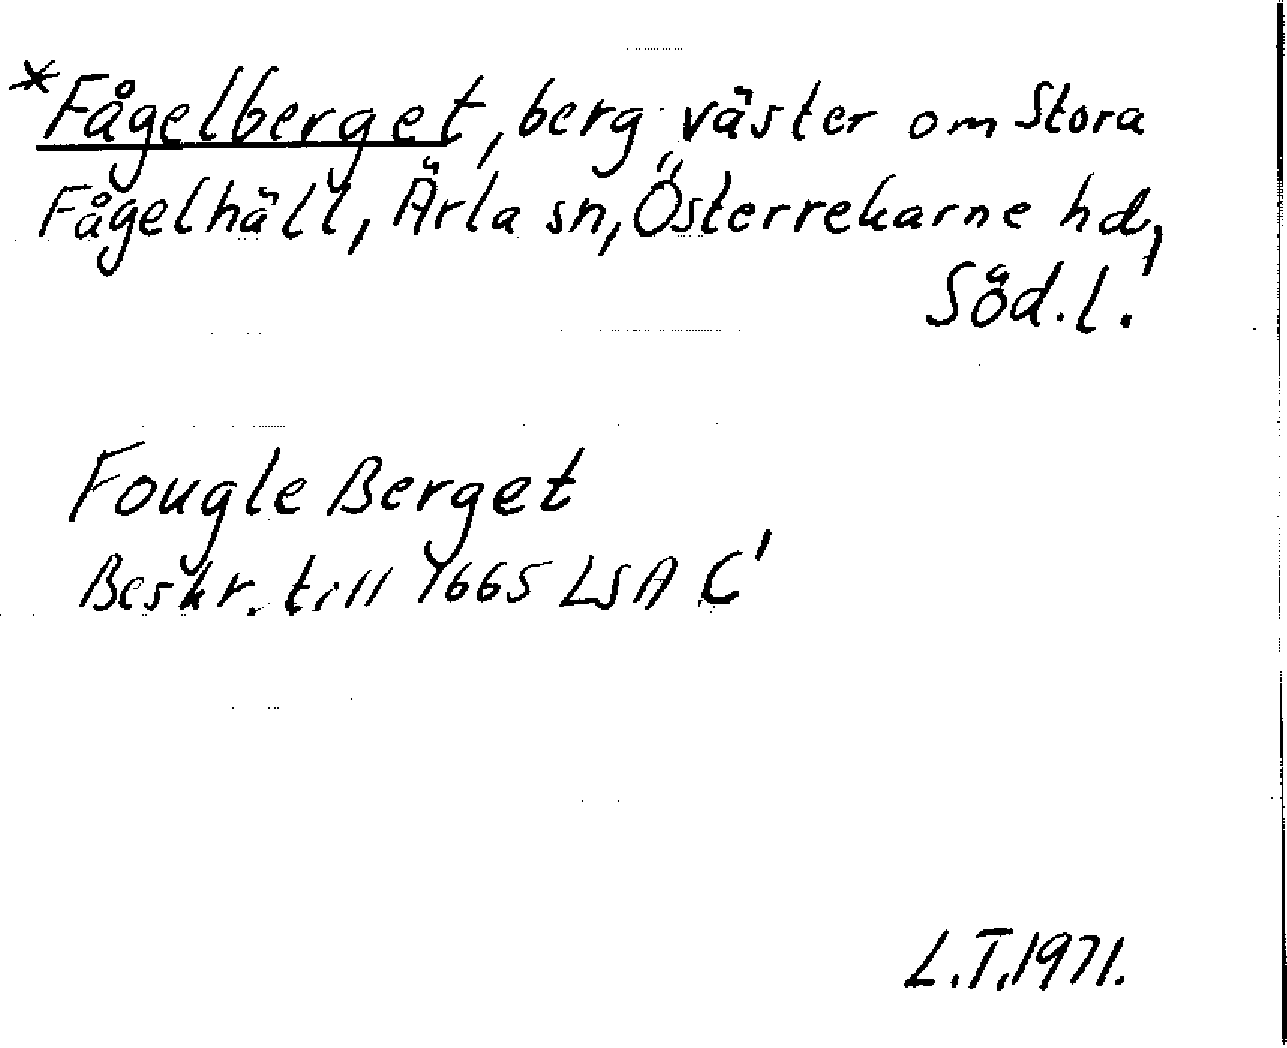 *Fågelberget, berg väster om Stora
Fågelhäll, Ärla sn, Österrekarne hd,
Söd.l.
Fougle Berget
Beskr. till Y665 LSA C'
L.T. 1971.